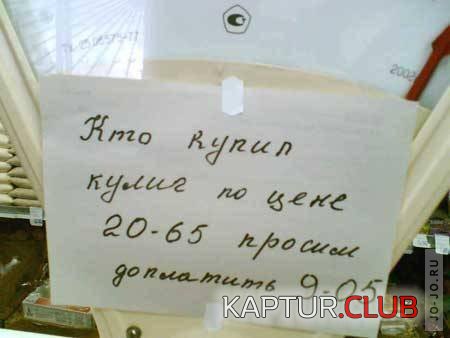 2002
Кто купил
кулич по цене
20-65 просим
доплатить 9-05
KAPTUR.CLUB
JO-JO.RU